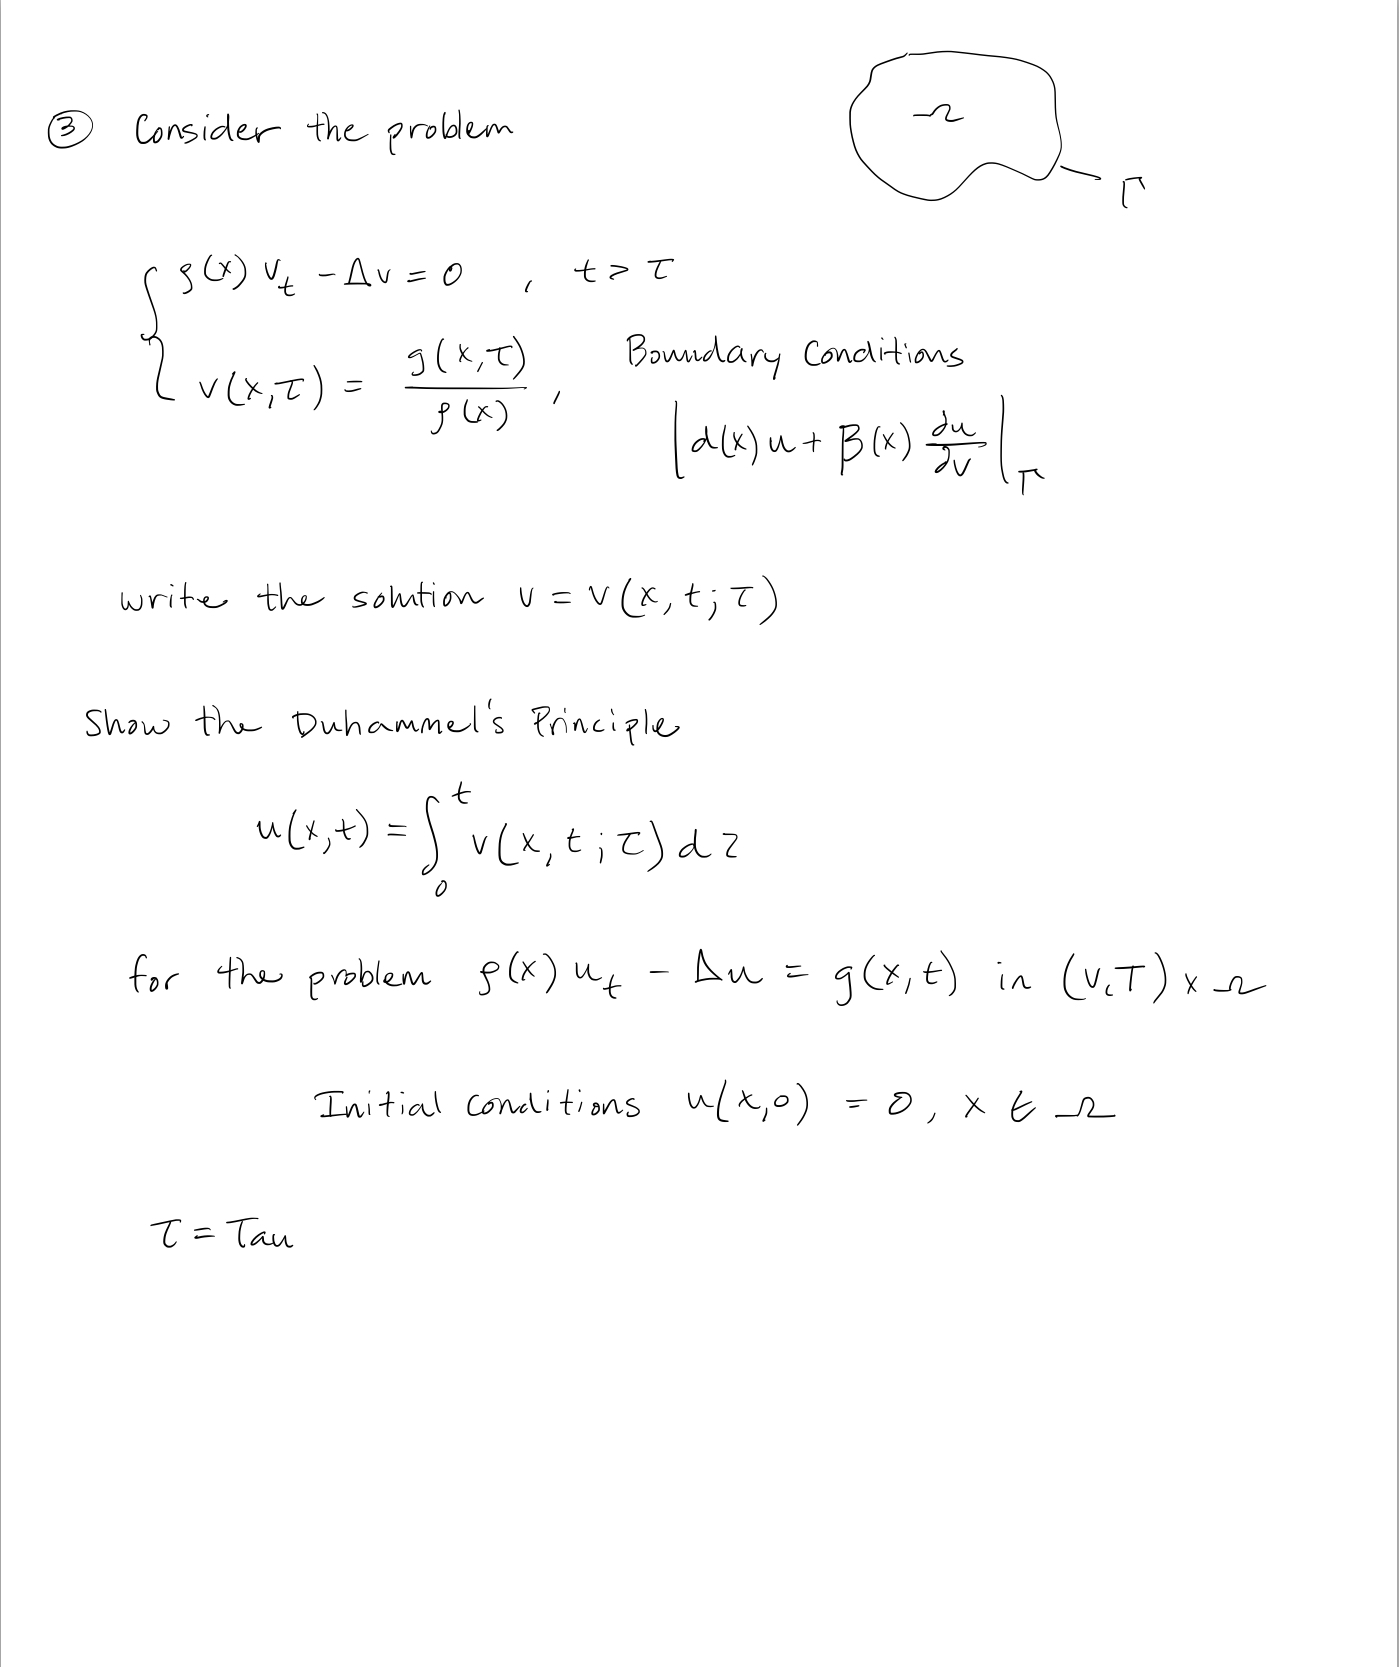 ③ Consider the problem
Ω
Γ
{ ρ(x) v_t - Δv = 0 , t > τ
v(x,τ) = g(x,τ) / ρ(x) ,
Boundary Conditions
| α(x) u + β(x) ∂u/∂ν |_Γ
write the solution v = v(x, t; τ)
Show the Duhammel's Principle
u(x,t) = ∫_0^t v(x, t; τ) dτ
for the problem ρ(x) u_t - Δu = g(x,t) in (v,T) x Ω
Initial conditions u(x,0) = 0, x ∈ Ω
τ = Tau